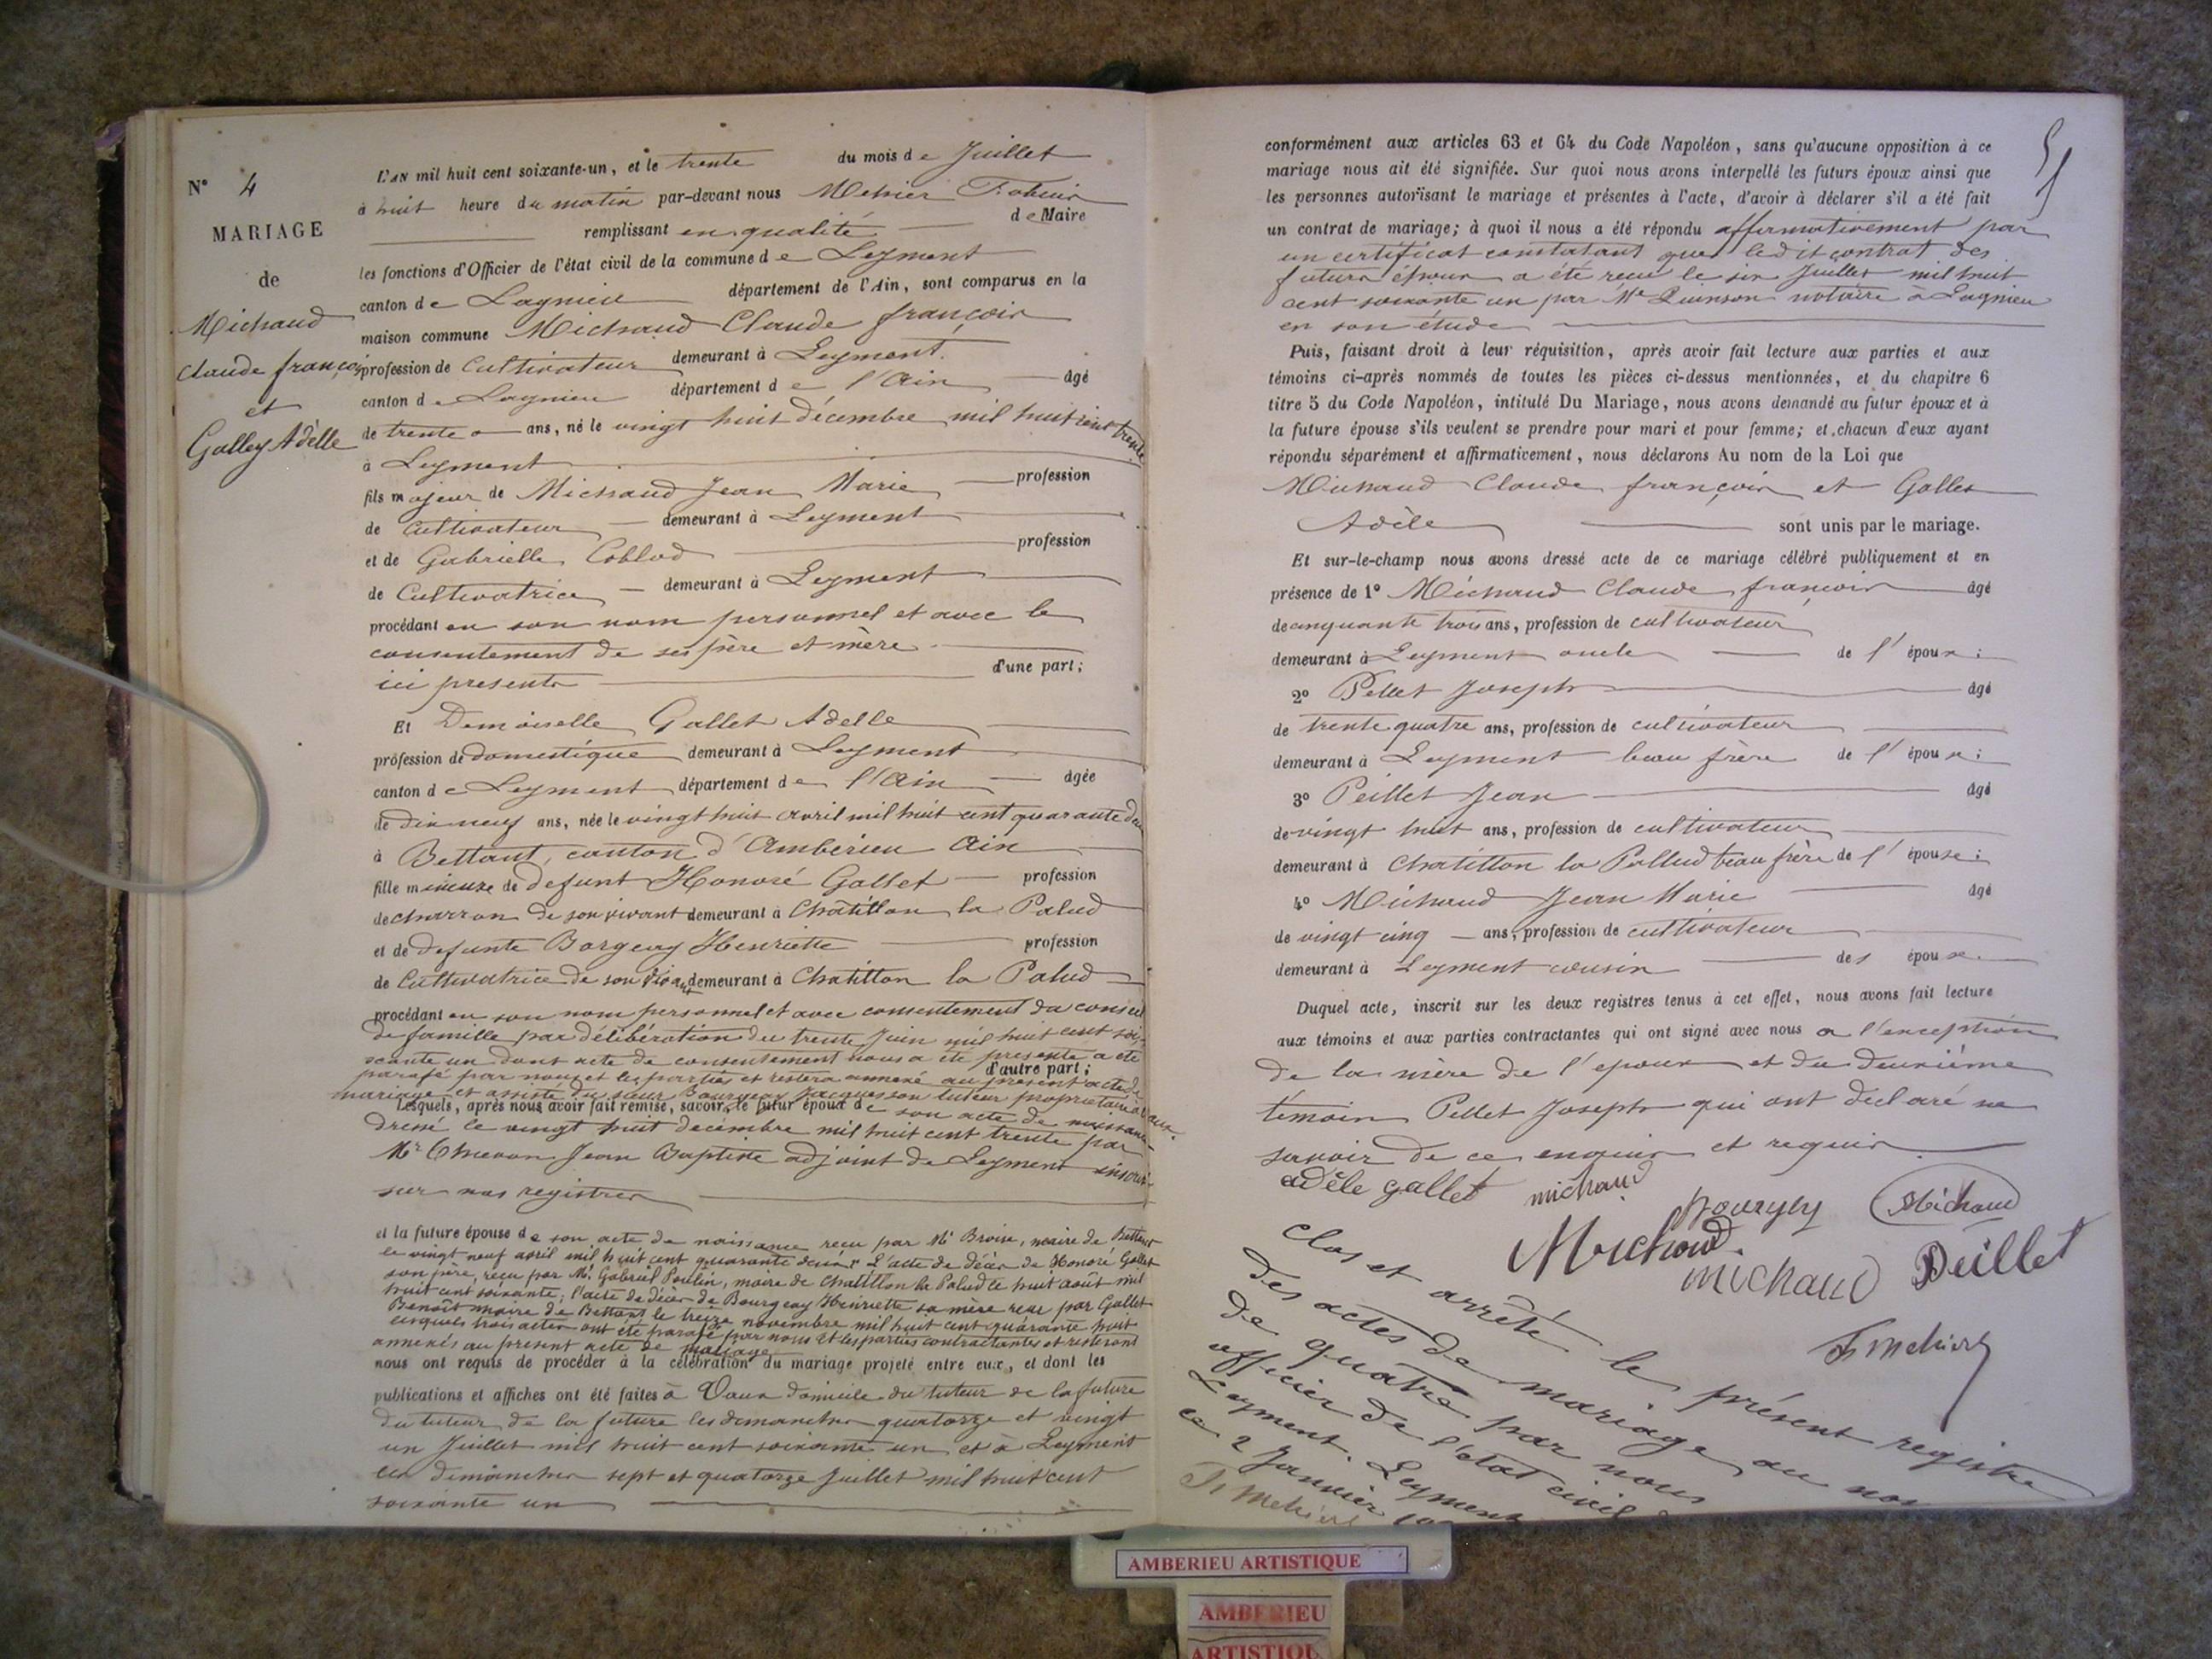 N° 4
MARIAGE
de
Michaud
Claude françois
et
Galley Adèlle
L'AN mil huit cent soixante-un, et le trente du mois de Juillet
à huit heure du matin par-devant nous Mehier
remplissant en qualité de Maire
les fonctions d'Officier de l'état civil de la commune de Leyment
canton de Lagnieu département de l'Ain, sont comparus en la
maison commune Michaud Claude françois
profession de Cultivateur demeurant à Leyment
canton de Lagnieu département de l'Ain âgé
de trente ans, né le vingt huit décembre mil huit cent trente
à Leyment
fils majeur de Michaud Jean Marie profession
de Cultivateur demeurant à Leyment
et de Gabrielle Coblod profession
de Cultivatrice demeurant à Leyment
procédant en son nom personnel et avec le
consentement de ses père et mère
ici presents d'une part;
Et Demoiselle Gallet Adelle
profession de domestique demeurant à Leyment
canton de Leyment département de l'Ain âgée
de dix neuf ans, née le vingt huit avril mil huit cent quarante deux
à Bettant, canton d'Ambérieu Ain
fille mineure de defunt Honoré Gallet profession
de charron de son vivant demeurant à Chatillon la Palud
et de defunte Borgeay Henriette profession
de Cultivatrice de son vivant demeurant à Chatillon la Palud
procédant en son nom personnel et avec consentement du conseil
de famille par délibération du trente Juin mil huit cent soi-
xante un dont acte de consentement nous a été presenté a été
parafé par nous et les parties et restera annexé au présent acte de
d'autre part;
mariage et assisté du sieur Bourgeay Jacques son tuteur propriétaire à Vaux.
Lesquels, après nous avoir fait remise, savoir, le futur époux de son acte de naissance
dressé le vingt huit decembre mil huit cent trente par
Mr Jean Baptiste adjoint de Leyment inscrit
sur nos registres
et la future épouse de son acte de naissance reçu par Mr Broise, maire de Bettant
le vingt neuf avril mil huit cent quarante deux L'acte de décès de Honoré Gallet
son père, reçu par Mr Gabriel Poulin, maire de Chatillon la Palud le huit août mil
huit cent soixante; l'acte de décès de Bourgeay Henriette sa mère reçu par Gallet
Benoît maire de Bettant le treize novembre mil huit cent quarante huit
lesquels trois actes ont été parafé par nous et les parties contractantes et resteront
annexés au present acte de mariage
nous ont requis de procéder à la célébration du mariage projeté entre eux, et dont les
publications et affiches ont été faites à Vaux domicile du tuteur de la future
du tuteur de la future les dimanches quatorze et vingt
un Juillet mil huit cent soixante un et à Leyment
les dimanches sept et quatorze Juillet mil huit cent
soixante un
conformément aux articles 63 et 64 du Code Napoléon, sans qu'aucune opposition à ce
mariage nous ait été signifiée. Sur quoi nous avons interpellé les futurs époux ainsi que
les personnes autorisant le mariage et présentes à l'acte, d'avoir à déclarer s'il a été fait
un contrat de mariage; à quoi il nous a été répondu affirmativement par
un certificat constatant que ledit contrat des
futurs époux a été reçu le six Juillet mil huit
cent soixante un par Me Quinson notaire à Lagnieu
en son étude
Puis, faisant droit à leur réquisition, après avoir fait lecture aux parties et aux
témoins ci-après nommés de toutes les pièces ci-dessus mentionnées, et du chapitre 6
titre 5 du Code Napoléon, intitulé Du Mariage, nous avons demandé au futur époux et à
la future épouse s'ils veulent se prendre pour mari et pour femme; et chacun d'eux ayant
répondu séparément et affirmativement, nous déclarons Au nom de la Loi que
Michaud Claude françois et Gallet
Adèle sont unis par le mariage.
Et sur-le-champ nous avons dressé acte de ce mariage célébré publiquement et en
présence de 1° Michaud Claude françois âgé
de cinquante trois ans, profession de cultivateur
demeurant à Leyment oncle de l'époux;
2° Pellet Joseph âgé
de trente quatre ans, profession de cultivateur
demeurant à Leyment beau frère de l'époux;
3° Peillet Jean âgé
de vingt huit ans, profession de cultivateur
demeurant à Chatillon la Pallud beau frère de l'épouse;
4° Michaud Jean Marie âgé
de vingt cinq ans, profession de cultivateur
demeurant à Leyment cousin des époux.
Duquel acte, inscrit sur les deux registres tenus à cet effet, nous avons fait lecture
aux témoins et aux parties contractantes qui ont signé avec nous a l'exception
de la mère de l'epoux et du deuxième
témoin Pellet Joseph qui ont déclaré ne
savoir de ce enquis et requis
adèle gallet michaud
Bourgey Michaud
Michaud
michaud Peillet
F Mehier
Clos et arrêté le présent registre
des actes de mariage au nombre
de quatre par nous
officier de l'état civil
Leyment. Leyment
ce 2 Janvier
F Mehier
AMBERIEU ARTISTIQUE
AMBERIEU
ARTISTIQUE